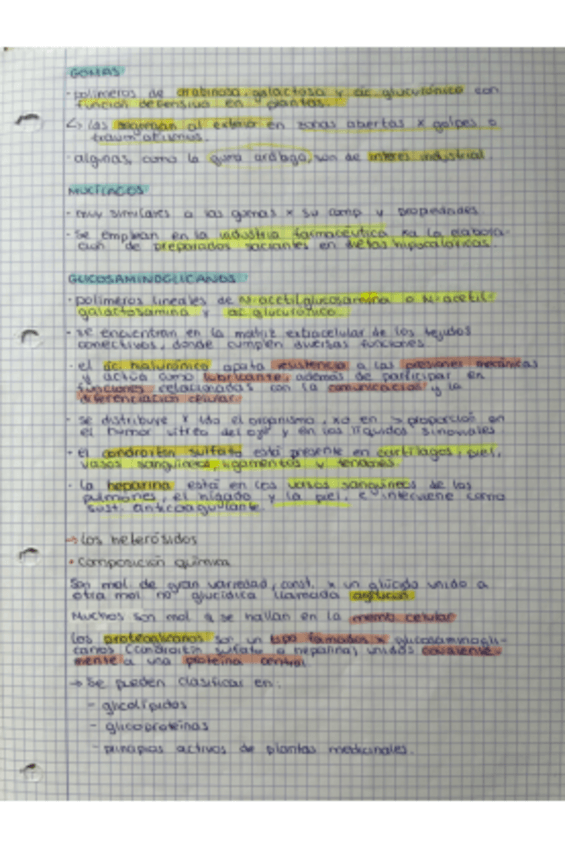 GOMAS
· polímeros de arabinosa, galactosa y ác. glucurónico con
función defensiva en plantas.
↳ las segregan al exterior en zonas abiertas x golpes o
traumatismos.
· algunas, como la goma arábiga, son de interés industrial
MUCÍLAGOS
· muy similares a las gomas x su comp. y propiedades.
· se emplean en la industria farmacéutica xa la elabora-
ción de preparados saciantes en dietas hipocalóricas.
GLICOSAMINOGLICANOS
· polímeros lineales de N-acetilglucosamina o N-acetil-
galactosamina y ác. glucurónico.
· se encuentran en la matriz extracelular de los tejidos
conectivos, donde cumplen diversas funciones.
· el ác. hialurónico aporta resistencia a las presiones mecánicas
y actúa como lubricante, además de participar en
funciones relacionadas con la comunicación y la
diferenciación celular.
· se distribuye x tdo el organismo, xo en > proporción en
el humor vítreo del ojo y en los líquidos sinoviales
· el condroitín sulfato está presente en cartílagos, piel,
vasos sanguíneos, ligamentos y tendones.
· la heparina está en los vasos sanguíneos de los
pulmones, el hígado y la piel, e interviene como
sust. anticoagulante.
→ Los heterósidos
• Composición química
Son mol. de gran variedad, const. x un glúcido unido a
otra mol. no glucídica llamada aglucón.
Muchos son mol. q se hallan en la memb. celular
Los proteoglicanos son un tipo formados x glucosaminogli-
canos (condroitín sulfato o heparina) unidos covalente-
mente a una proteína central
→ Se pueden clasificar en:
- glicolípidos
- glicoproteínas
- principios activos de plantas medicinales.